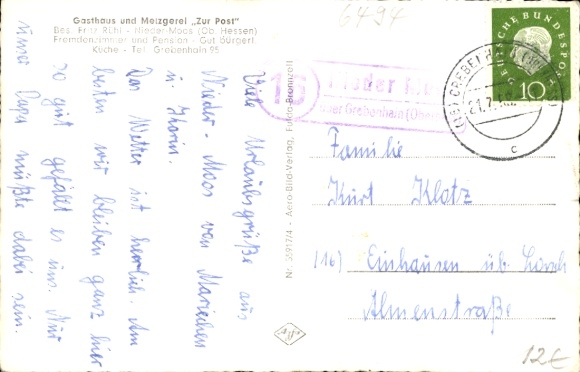 Gasthaus und Metzgerei „Zur Post"
Bes. Fritz Rühl - Nieder-Moos (Ob. Hessen)
Fremdenzimmer und Pension - Gut bürgerl.
Küche - Tel. Grebenhain 95
Viele Urlaubsgrüße aus
Nieder-Moos von Mariechen
u. Karin.
Das Wetter ist herrlich. Am
besten wir bleiben ganz hier
so gut gefällt es uns. Nur
unser Papa müßte dabei sein.
Nr. 36917/4 - Aero-Bild-Verlag, Fulda-Bronnzell
6494
16
Nieder
über Grebenhain
DEUTSCHE BUNDESPOST
10
(16) GREBENHAIN
21.7.
c
Familie
Kurt Klotz
(16) Einhausen üb. Lorsch
Almenstraße
12€